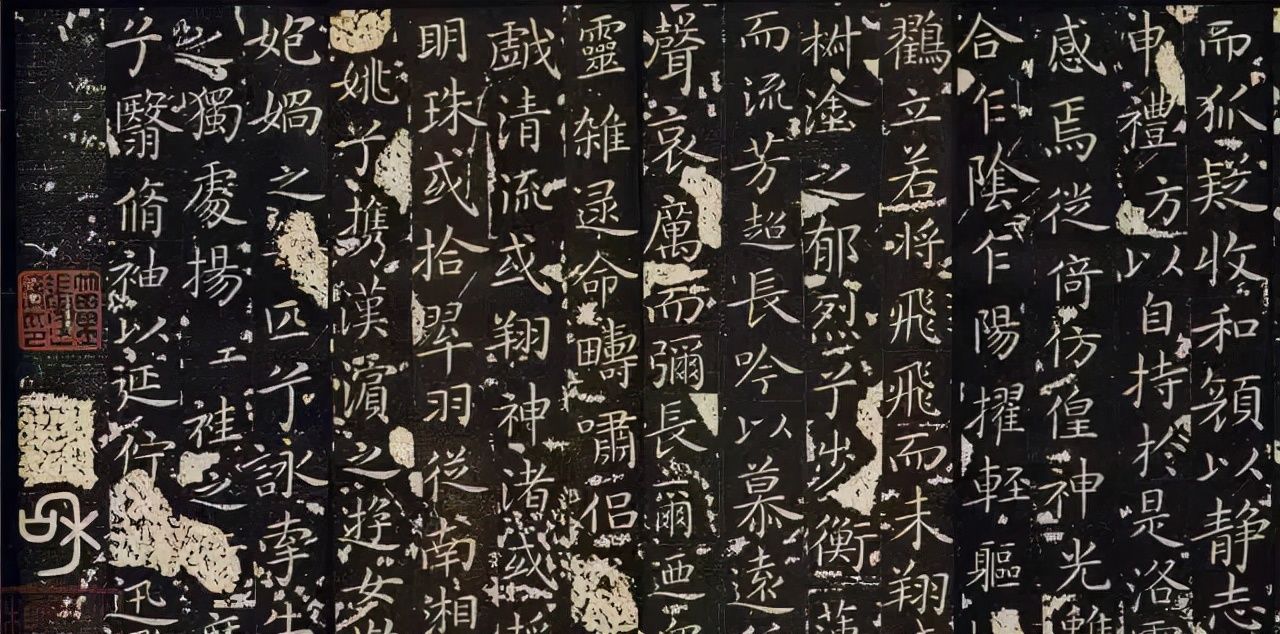 而狐疑收和顔以静志
申禮方以自持於是洛
感焉徙倚彷徨神光離
合乍陰乍陽擢輕軀
鸖立若將飛飛而未翔
椒塗之郁烈兮步衡薄
而流芳超長吟以慕遠
聲哀厲而彌長爾迺衆
靈雜遝命疇嘯侶
戲清流或翔神渚或採
明珠或拾翠羽從南湘
姚兮攜漢濱之遊女
匏媧之匹兮詠牽牛
之獨處揚袿之
兮翳脩袖以延佇迅